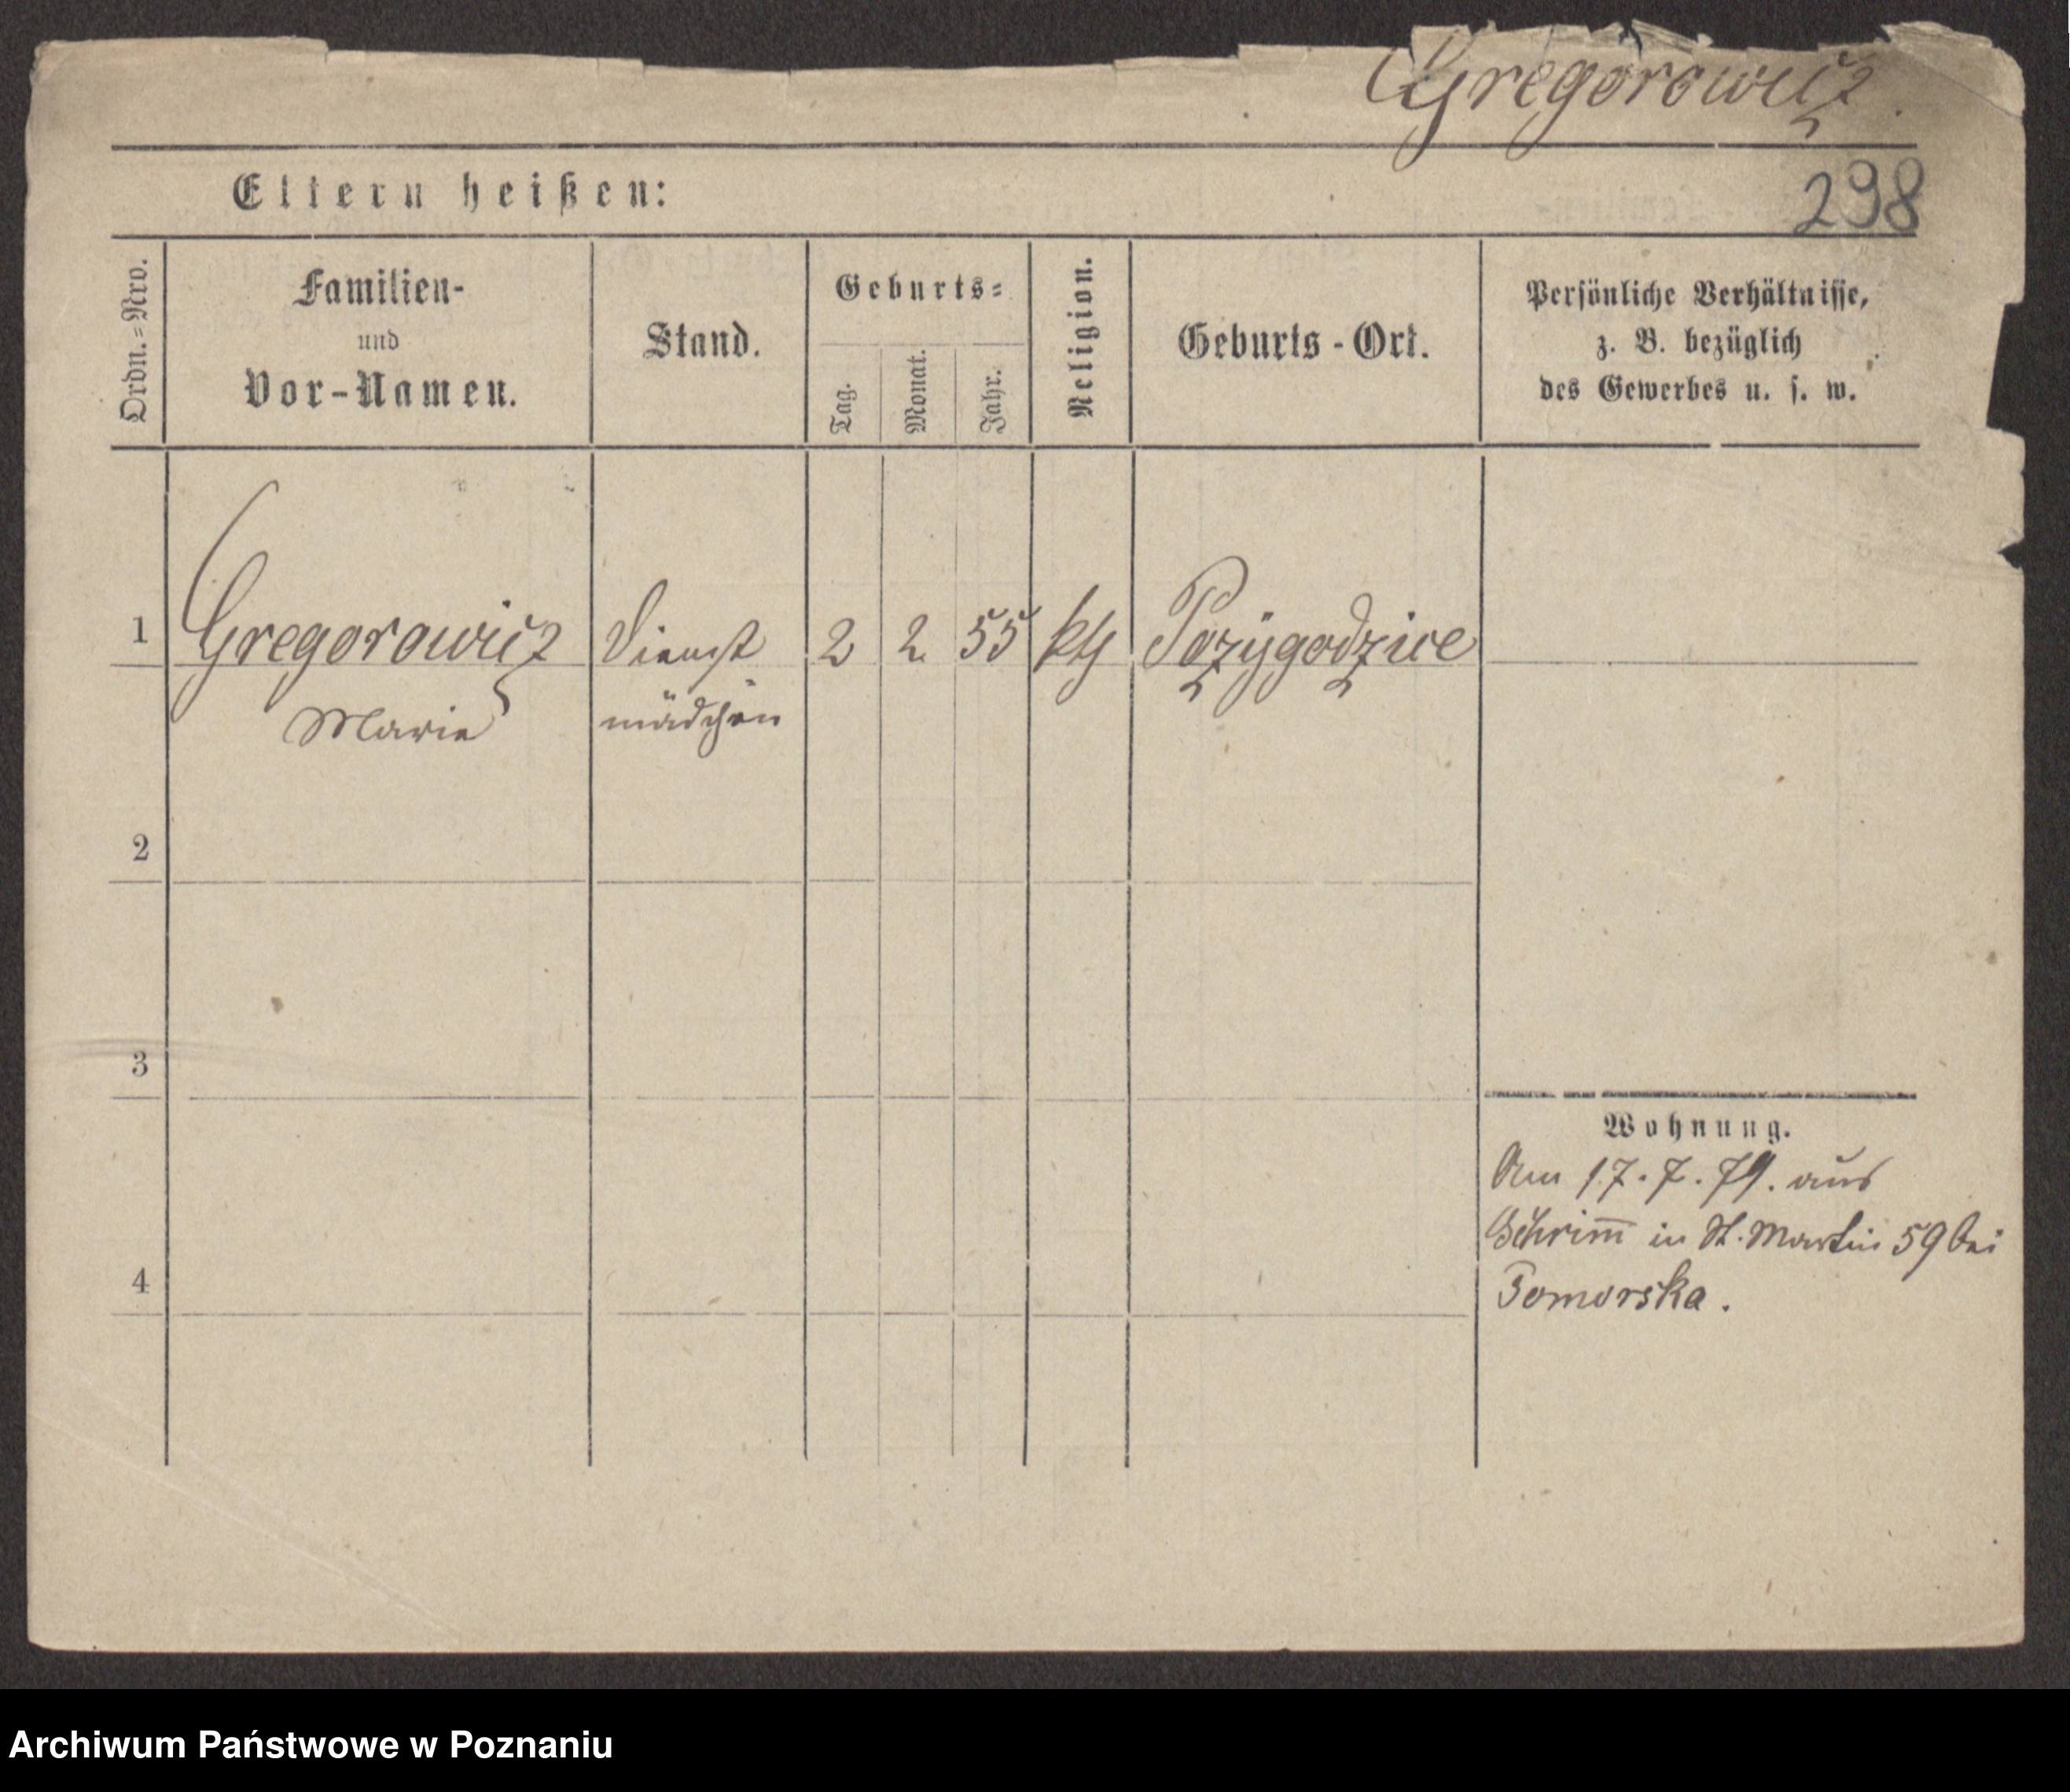 Gregorowicz.
298
Eltern heißen:
Ordn.=Nro.
Familien-
und
Vor-Namen.
Stand.
Geburts=
Tag.
Monat.
Jahr.
Religion.
Geburts-Ort.
Persönliche Verhältnisse,
z. B. bezüglich
des Gewerbes u. s. w.
1 Gregorowicz Dienst 2 2 55 kth
Marie mädchen
2
3
4
Wohnung.
Am 17.7.79. aus
Schrim̅ in St. Martin 59 bei
Pomorska.
Archiwum Państwowe w Poznaniu